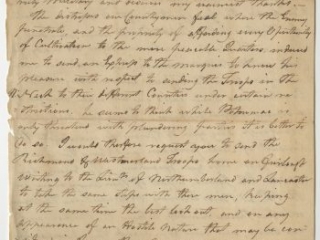 and receive my warmest thanks —
The distresses our Countrymen feel when the Enemy
penetrate, and the propriety of affording every Opportunity
of Cultivation to the more peaceable Counties, induced
me to send, an Express to the Marquis to know his
pleasure with respect to sending the Troops in the
Neck to their different Counties under certain re-
strictions, he seems to think while Potomac is
only threatened with plundering parties it is better to
do so. I would therefore request again to send the
Richmond & Westmoreland Troops home on
Writing to the of Northumberland and Lancaster
to take the same steps with their men, keeping
at the same time the best look out, and on any
appearance of an Hostile Nature that may be